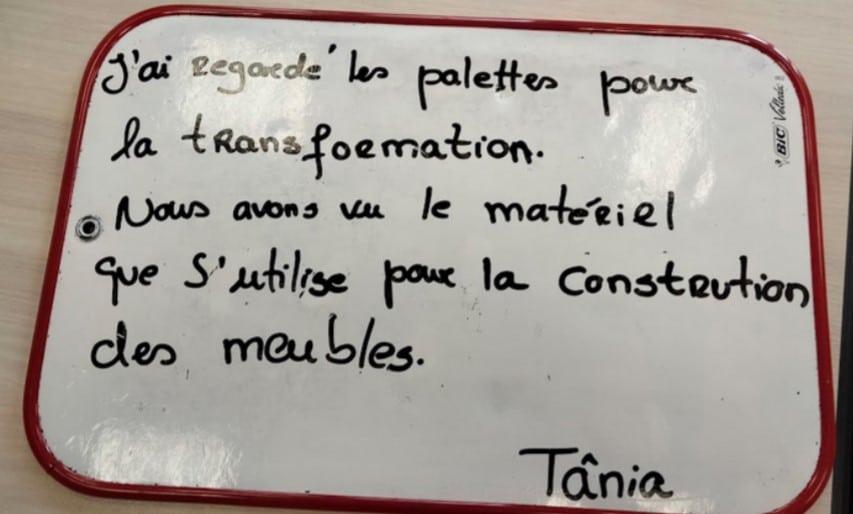 J'ai regardé les palettes pour
la transformation.
Nous avons vu le matériel
que s'utilise pour la constrution
des meubles.
Tânia
BIC Velleda